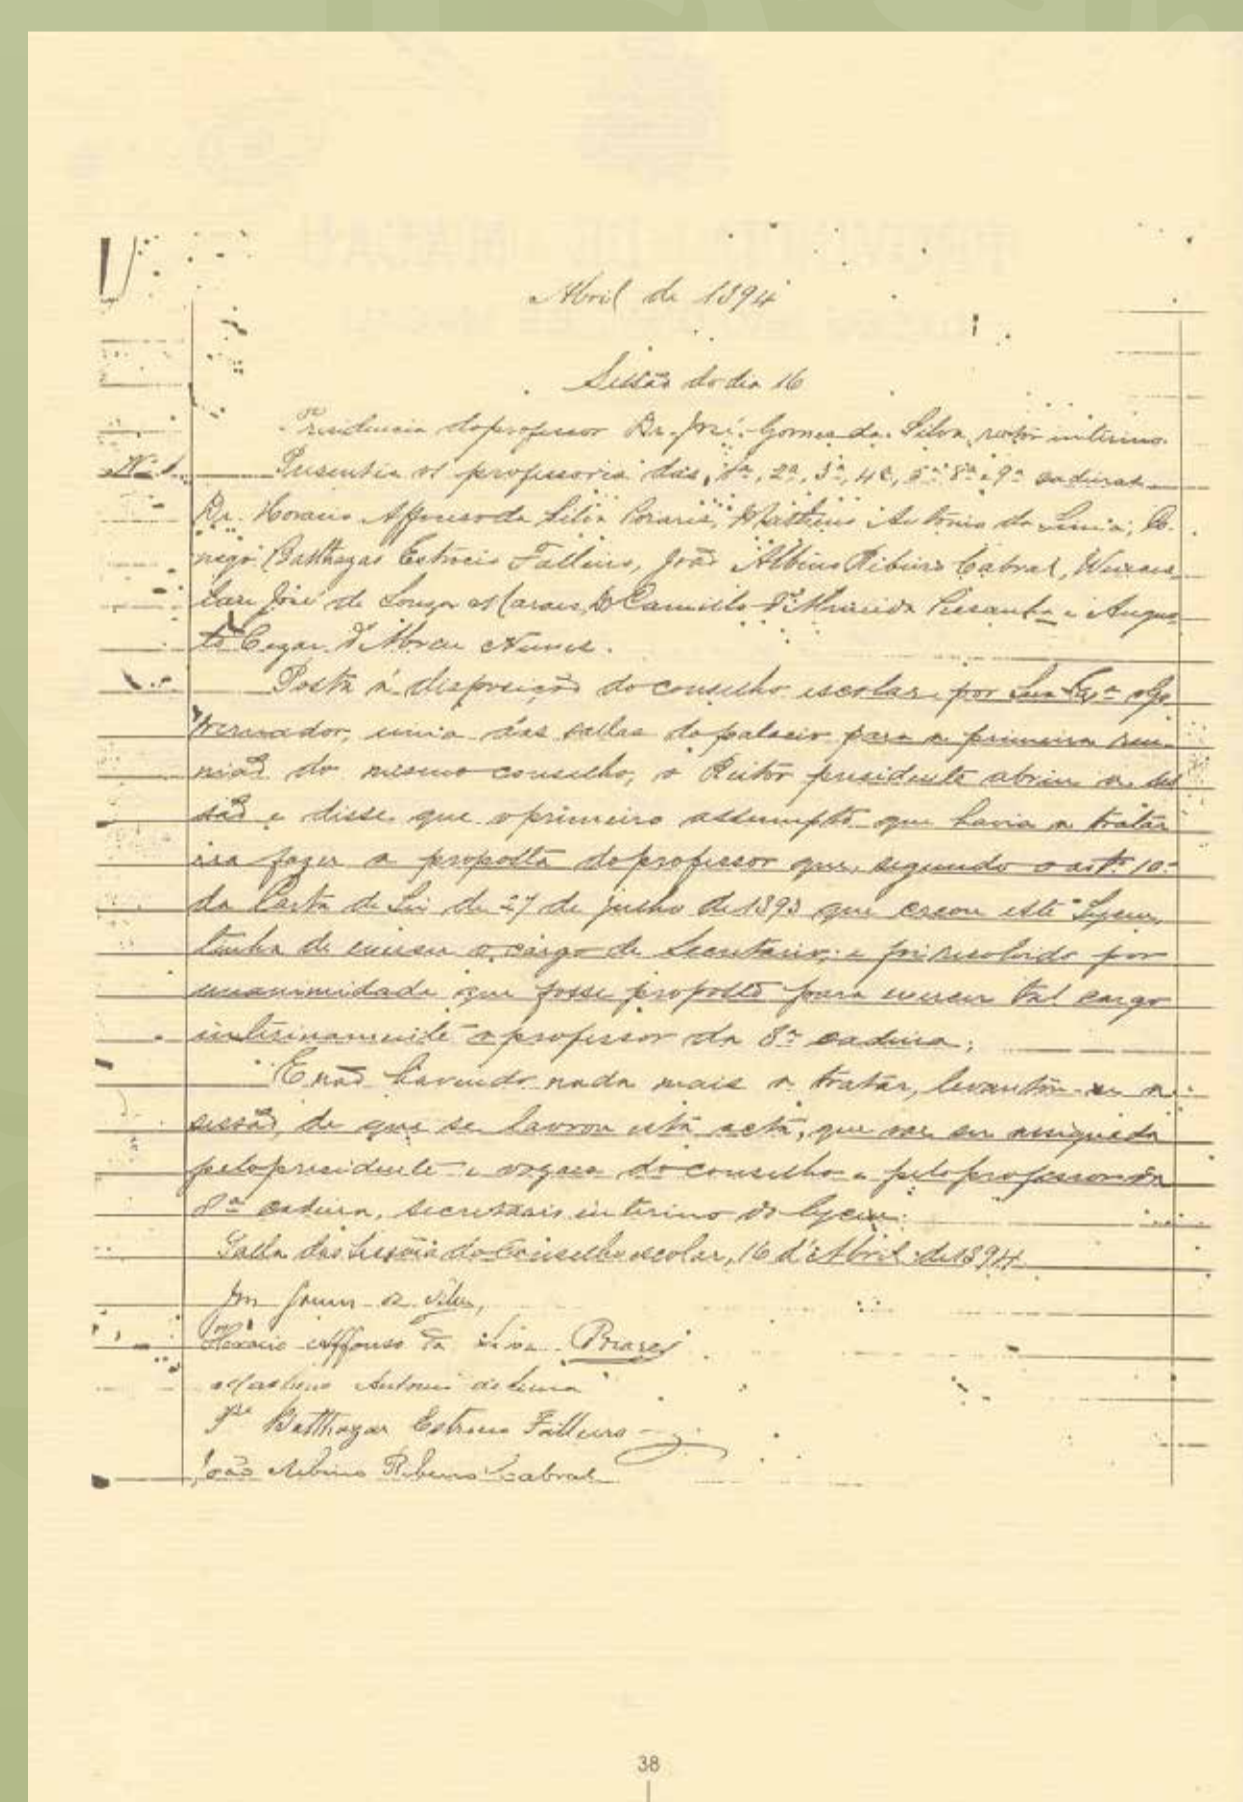 Abril de 1894
Sessão do dia 16
Presidencia do professor Dr. José Gomes da Silva, reitor interino.
N.º 1. Presentes os professores das 1ª, 2ª, 3ª, 4ª, 5ª 8ª e 9ª cadeiras
Dr. Horacio Affonso da Silva Poiares, Matheus Antonio de Lima, Co-
nego Balthazar Estrocio Falleiro, João Albino Ribeiro Cabral, Wences-
lau José de Souza Moraes, Dr. Camillo d'Almeida Pessanha e Augus-
to Cezar d'Abreu Nunes.
Posta á disposição do conselho escolar, por Sua Exª o Go-
vernador, uma das sallas do palacio para a primeira reu-
nião do mesmo conselho, o Reitor presidente abriu a ses-
são e disse que o primeiro assumpto que havia a tratar
era fazer a proposta do professor que, segundo o artº 10º
da Carta de Lei de 27 de julho de 1893 que creou este Lyceu,
tinha de exercer o cargo de Secretario; e foi resolvido por
unanimidade que fosse proposto para exercer tal cargo
interinamente o professor da 8ª cadeira;
E não havendo nada mais a tratar, levantou-se a
sessão, de que se lavrou esta acta, que vae ser assignada
pelo presidente e vogaes do conselho e pelo professor da
8ª cadeira, secretario interino do lyceu.
Salla das Sessões do Conselho escolar, 16 d'Abril de 1894.
José Gomes da Silva,
Horacio Affonso da Silva Poiares
Matheus Antonio de Lima
Pe Balthazar Estrocio Falleiro
João Albino Ribeiro Cabral
38